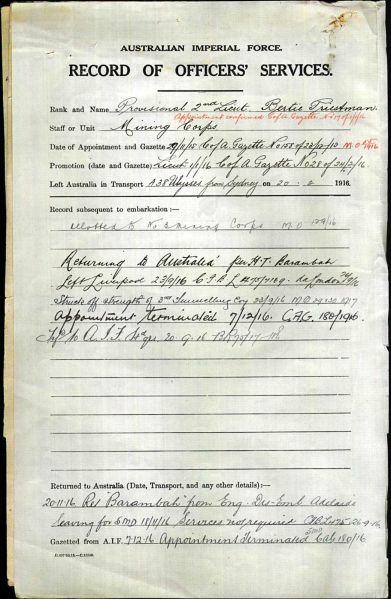 AUSTRALIAN IMPERIAL FORCE.
RECORD OF OFFICERS' SERVICES.
Rank and Name Provisional 2nd Lieut. Bertie Triestman.
Appointment confirmed C of A Gazette
Staff or Unit Mining Corps
Date of Appointment and Gazette C of A Gazette No 158 of
Promotion (date and Gazette) Lieut 1/1/16 C of A Gazette No 28 of 24/2/16
Left Australia in Transport A38 Ulysses from Sydney on 20 - 2 1916.
Record subsequent to embarkation:—
allotted to Mining Corps M.O.
Returning to Australia per H.T. Barambah
Left Liverpool 23/9/16 London
Struck off strength of 3rd Tunnelling Coy 23/9/16
Appointment terminated 7/12/16. C.A.G. 180/1916.
to A.I.F. Hdqrs 20-9-16
Returned to Australia (Date, Transport, and any other details):—
20-11-16 Ret "Barambah" from Eng. Dis-Emb Adelaide
leaving for 18/11/16 Services not required 26-9-16
Gazetted from A.I.F. 7-12-16 Appointment Terminated CAG 180/16